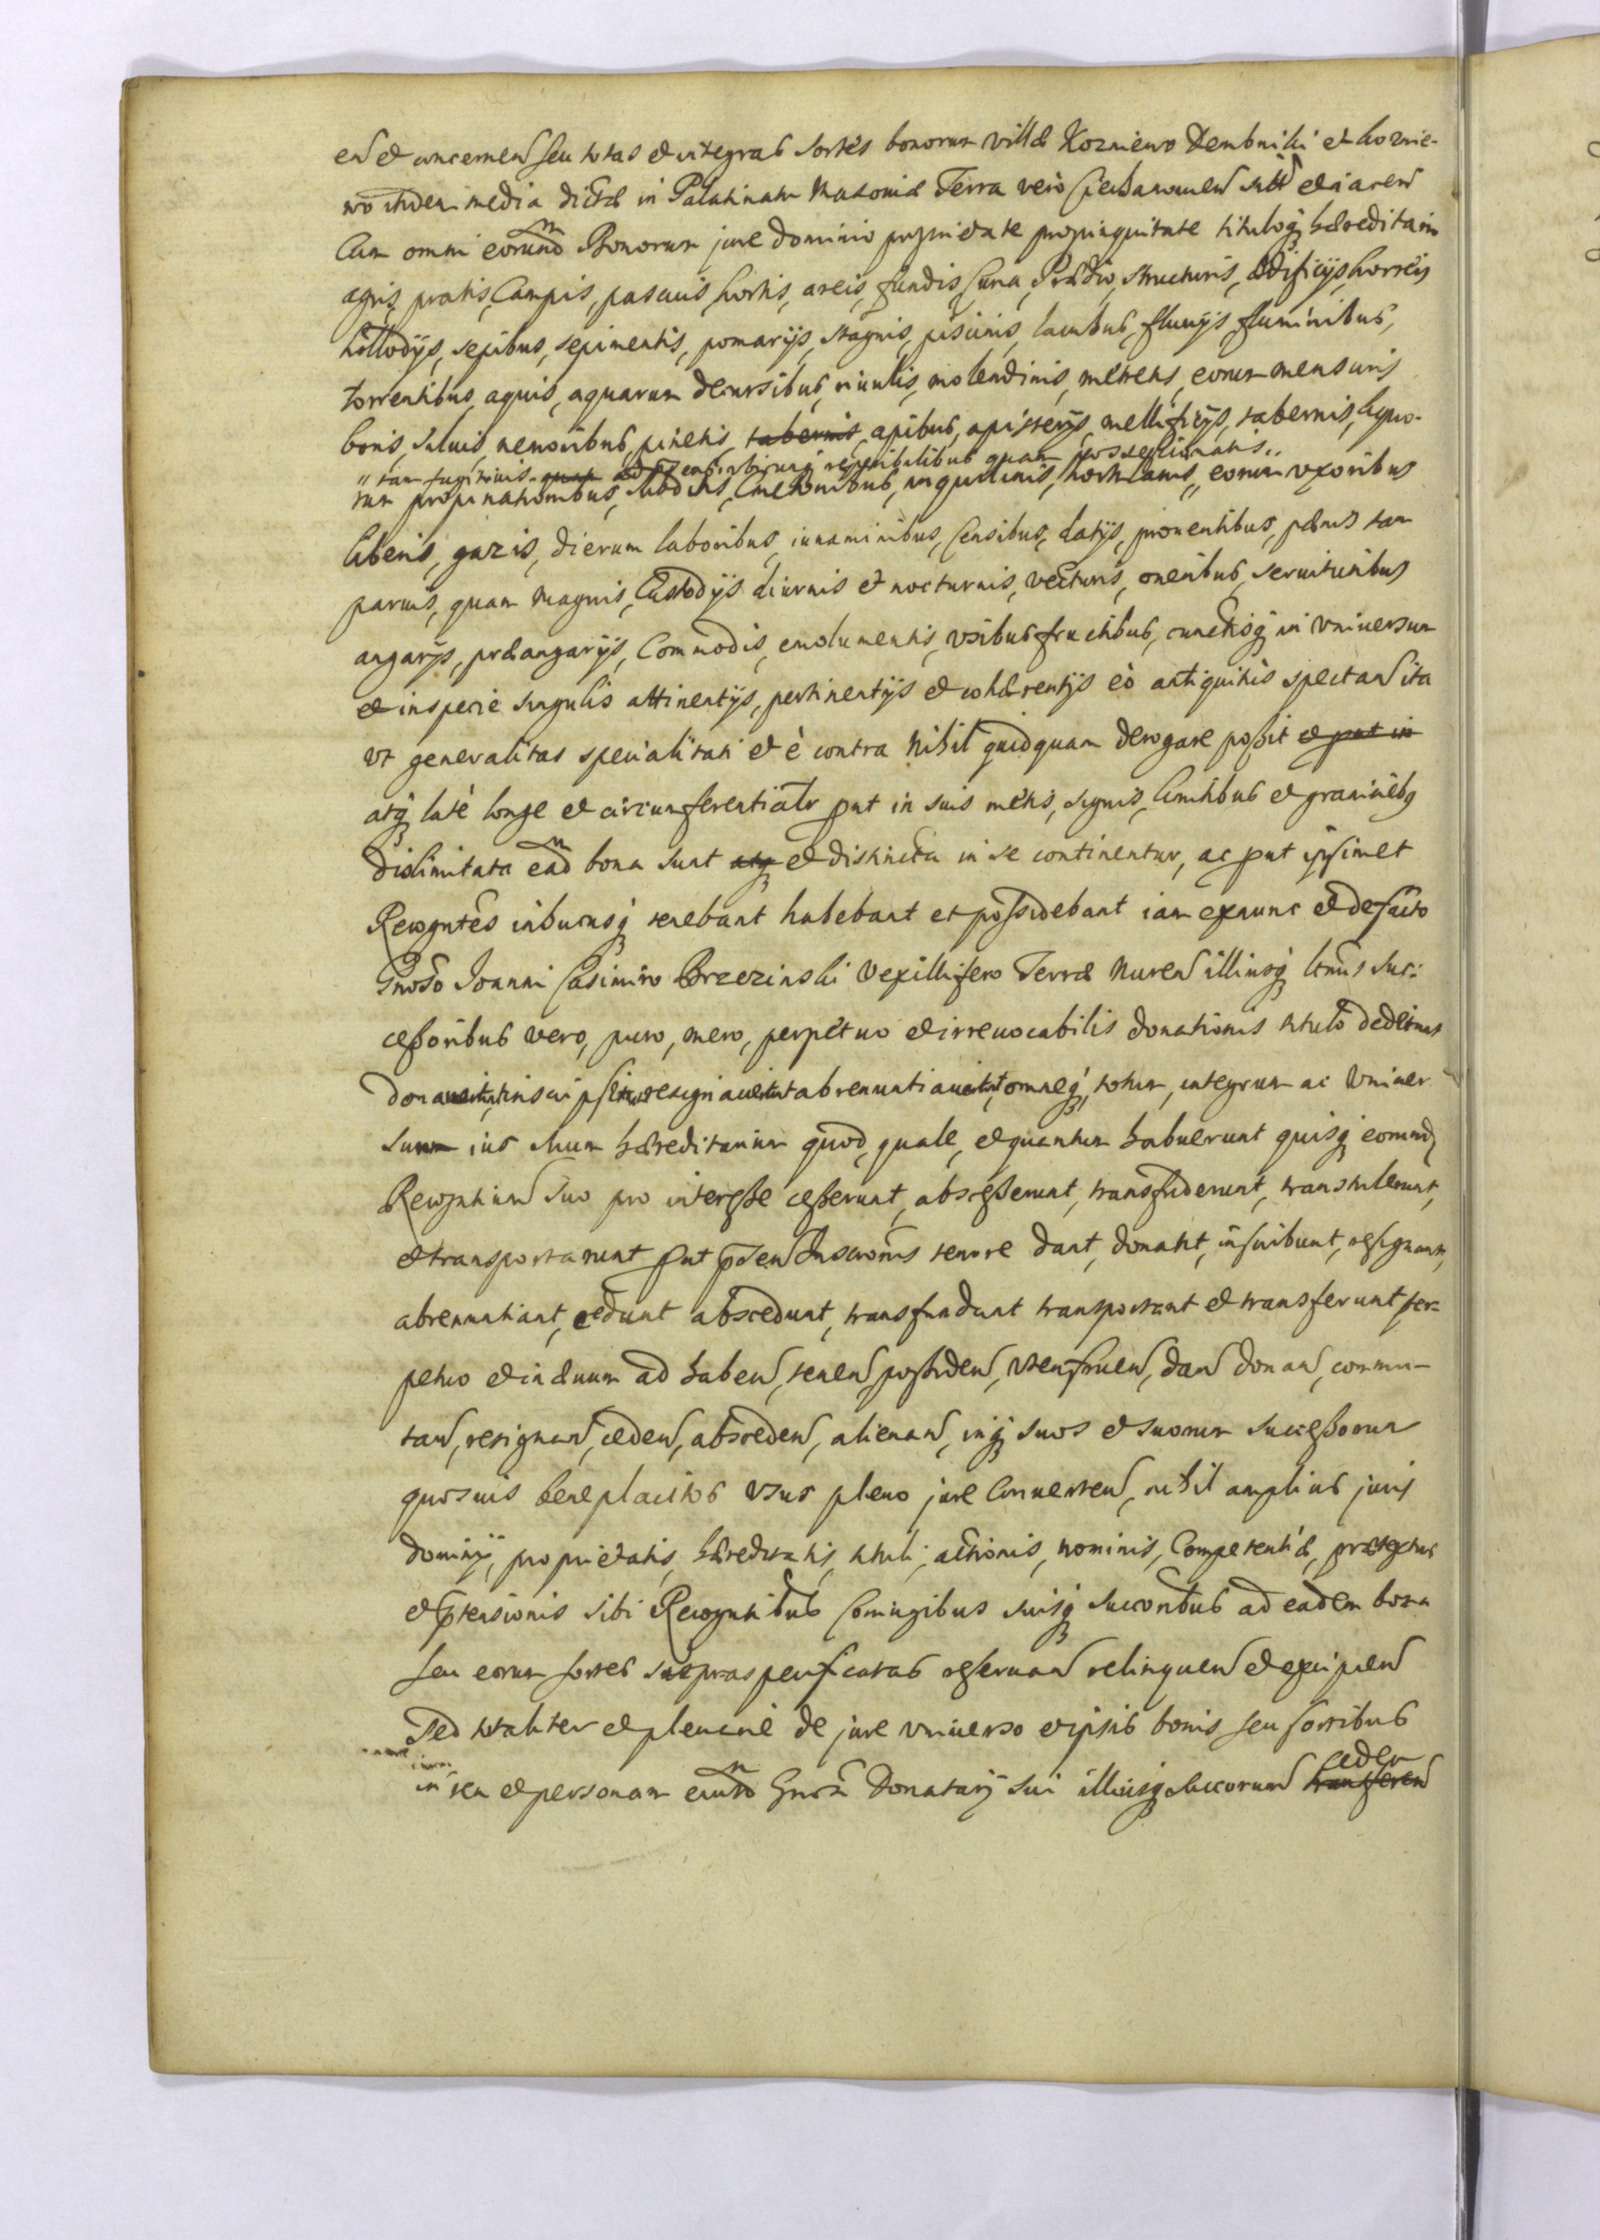 en et concernen seu totas et integras sortes bonorum villæ Kozniewo Dembniki et Koznie-
wo itidem media dictæ in Palatinatu Masoviæ Terra vero Ciechanouien sitt et iacen
Cum omni eorund Bonorum jure dominio proprietate propinquitate tituloq hæreditario
agris, pratis, Campis, pascuis, hortis, areis, fundis, Curia, Prædio, structuris, ædificijs, horreis
sepibus, sepimentis, pomarijs, stagnis, piscinis, lacubus, fluuijs, fluminibus,
torrentibus, aquis, aquarum decursibus, riuulis, molendinis, metretis, eorum mensuris
boris, siluis, nemoribus, pinetis, tabernis, apibus, apisterijs, mellificijs, tabernis, liquo-
" tam fugitiuis quam ad ubicunq reperibilibus quam possessionatis "
rum propinationibus, subditis, Cmetonibus, inquilinis, hortulanis, " eorum vxoribus
liberis, gazis, dierum laboribus, iuuaminibus, Censibus, datijs, prouentibus, pænis tam
paruis, quam magnis, Custodijs diurnis et nocturnis, vecturis, oneribus, seruitutibus
angarijs, præangarijs, Commodis, emolumentis, vsibus fructibus, cunctisq in vniuersum
et in specie singulis attinentijs, pertinentijs et cohærentijs eò antiquitùs spectan ita
vt generalitas specialitati et è contra nihil quidquam derogare poßit et put in
atq latè longe et circumferentialr put in suis metis, signis, limitibus et graniciebq
dislimitata ead bona sunt atq et distincta in se continentur, ac put ipsimet
Recogntes inhucusq tenebant habebant et poßidebant iam exnunc et de facto
Gnoso Joanni Casimiro Brzezinski Vexillifero Terræ Nuren illiusq ltmis suc:
ceßoribus vero, puro, mero, perpetuo et irreuocabilis donationis titulo dederunt
donauerunt inscripserunt resignauerunt abrenuntiauerunt, omneq, totum, integrum ac vniuer
sum ius suum hæreditarium quod, quale, et quantum habuerunt quisq eorund
Recogntium suo pro intereße ceßerunt, absceßerunt, transfuderunt, transtulerunt,
et transportarunt put pnten Inscronis tenore dant, donant, inscribunt, resignant,
abrenuntiant, cedunt abscedunt, transfundunt transportant et transferunt per-
petuo et in æuum ad haben, tenen, poßiden, vtenfruen, dan donan, commu-
tan, resignan, ceden, absceden, alienan, inq suos et suorum succeßorum
quosuis beneplacitos vsus pleno jure Conuerten, nihil amplius juris
dominij, proprietatis, hæreditatis, tituli, actionis, nominis, Competentiæ, prætextus
et ptensionis sibi Recogntibus Coniugibus suisq succoribus ad eadem bona
seu eorum sortes supraspecificatas reseruan relinquen et excipien
Sed totaliter et plenarie de jure vniuerso et ipsis bonis seu sortibus
in rem et personam eiusd Gnosi Donatarij sui illiusq succorum transferen ceden